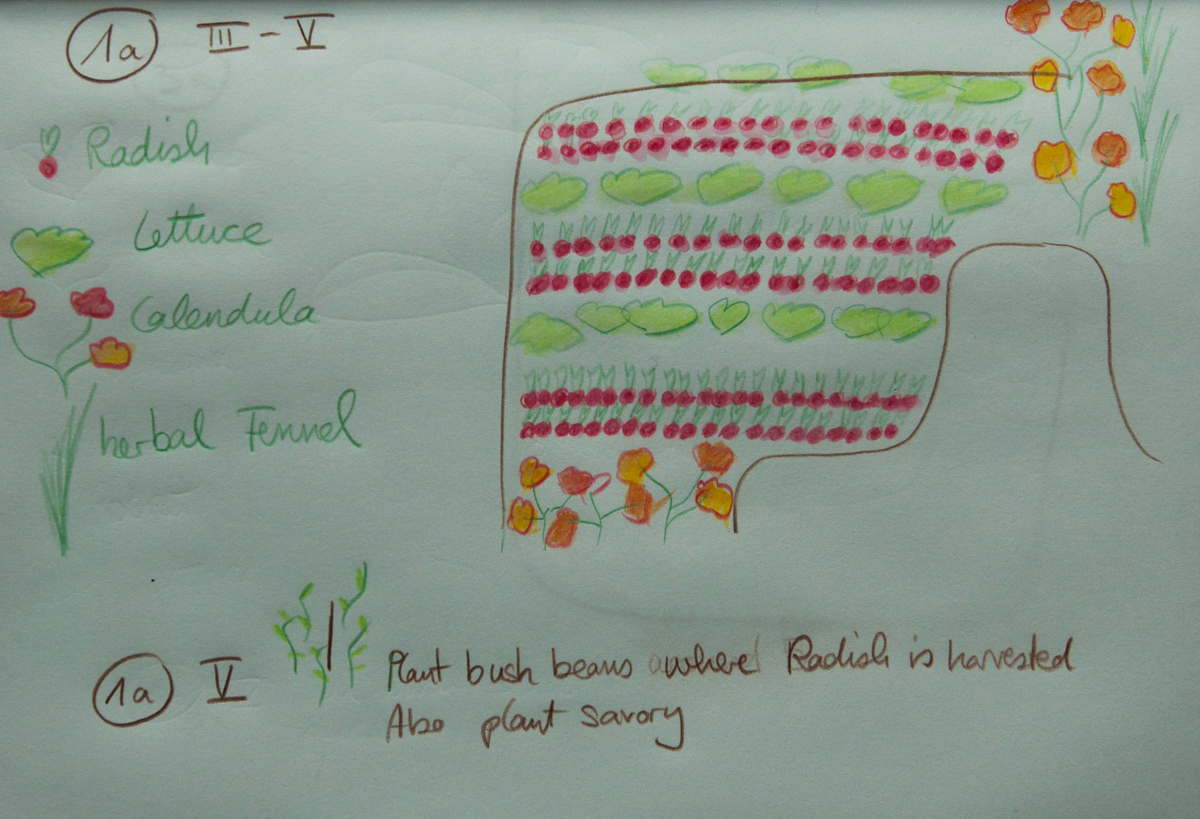 1a III - V
Radish
Lettuce
Calendula
herbal Fennel
1a V
Plant bush beans where Radish is harvested
Also plant savory